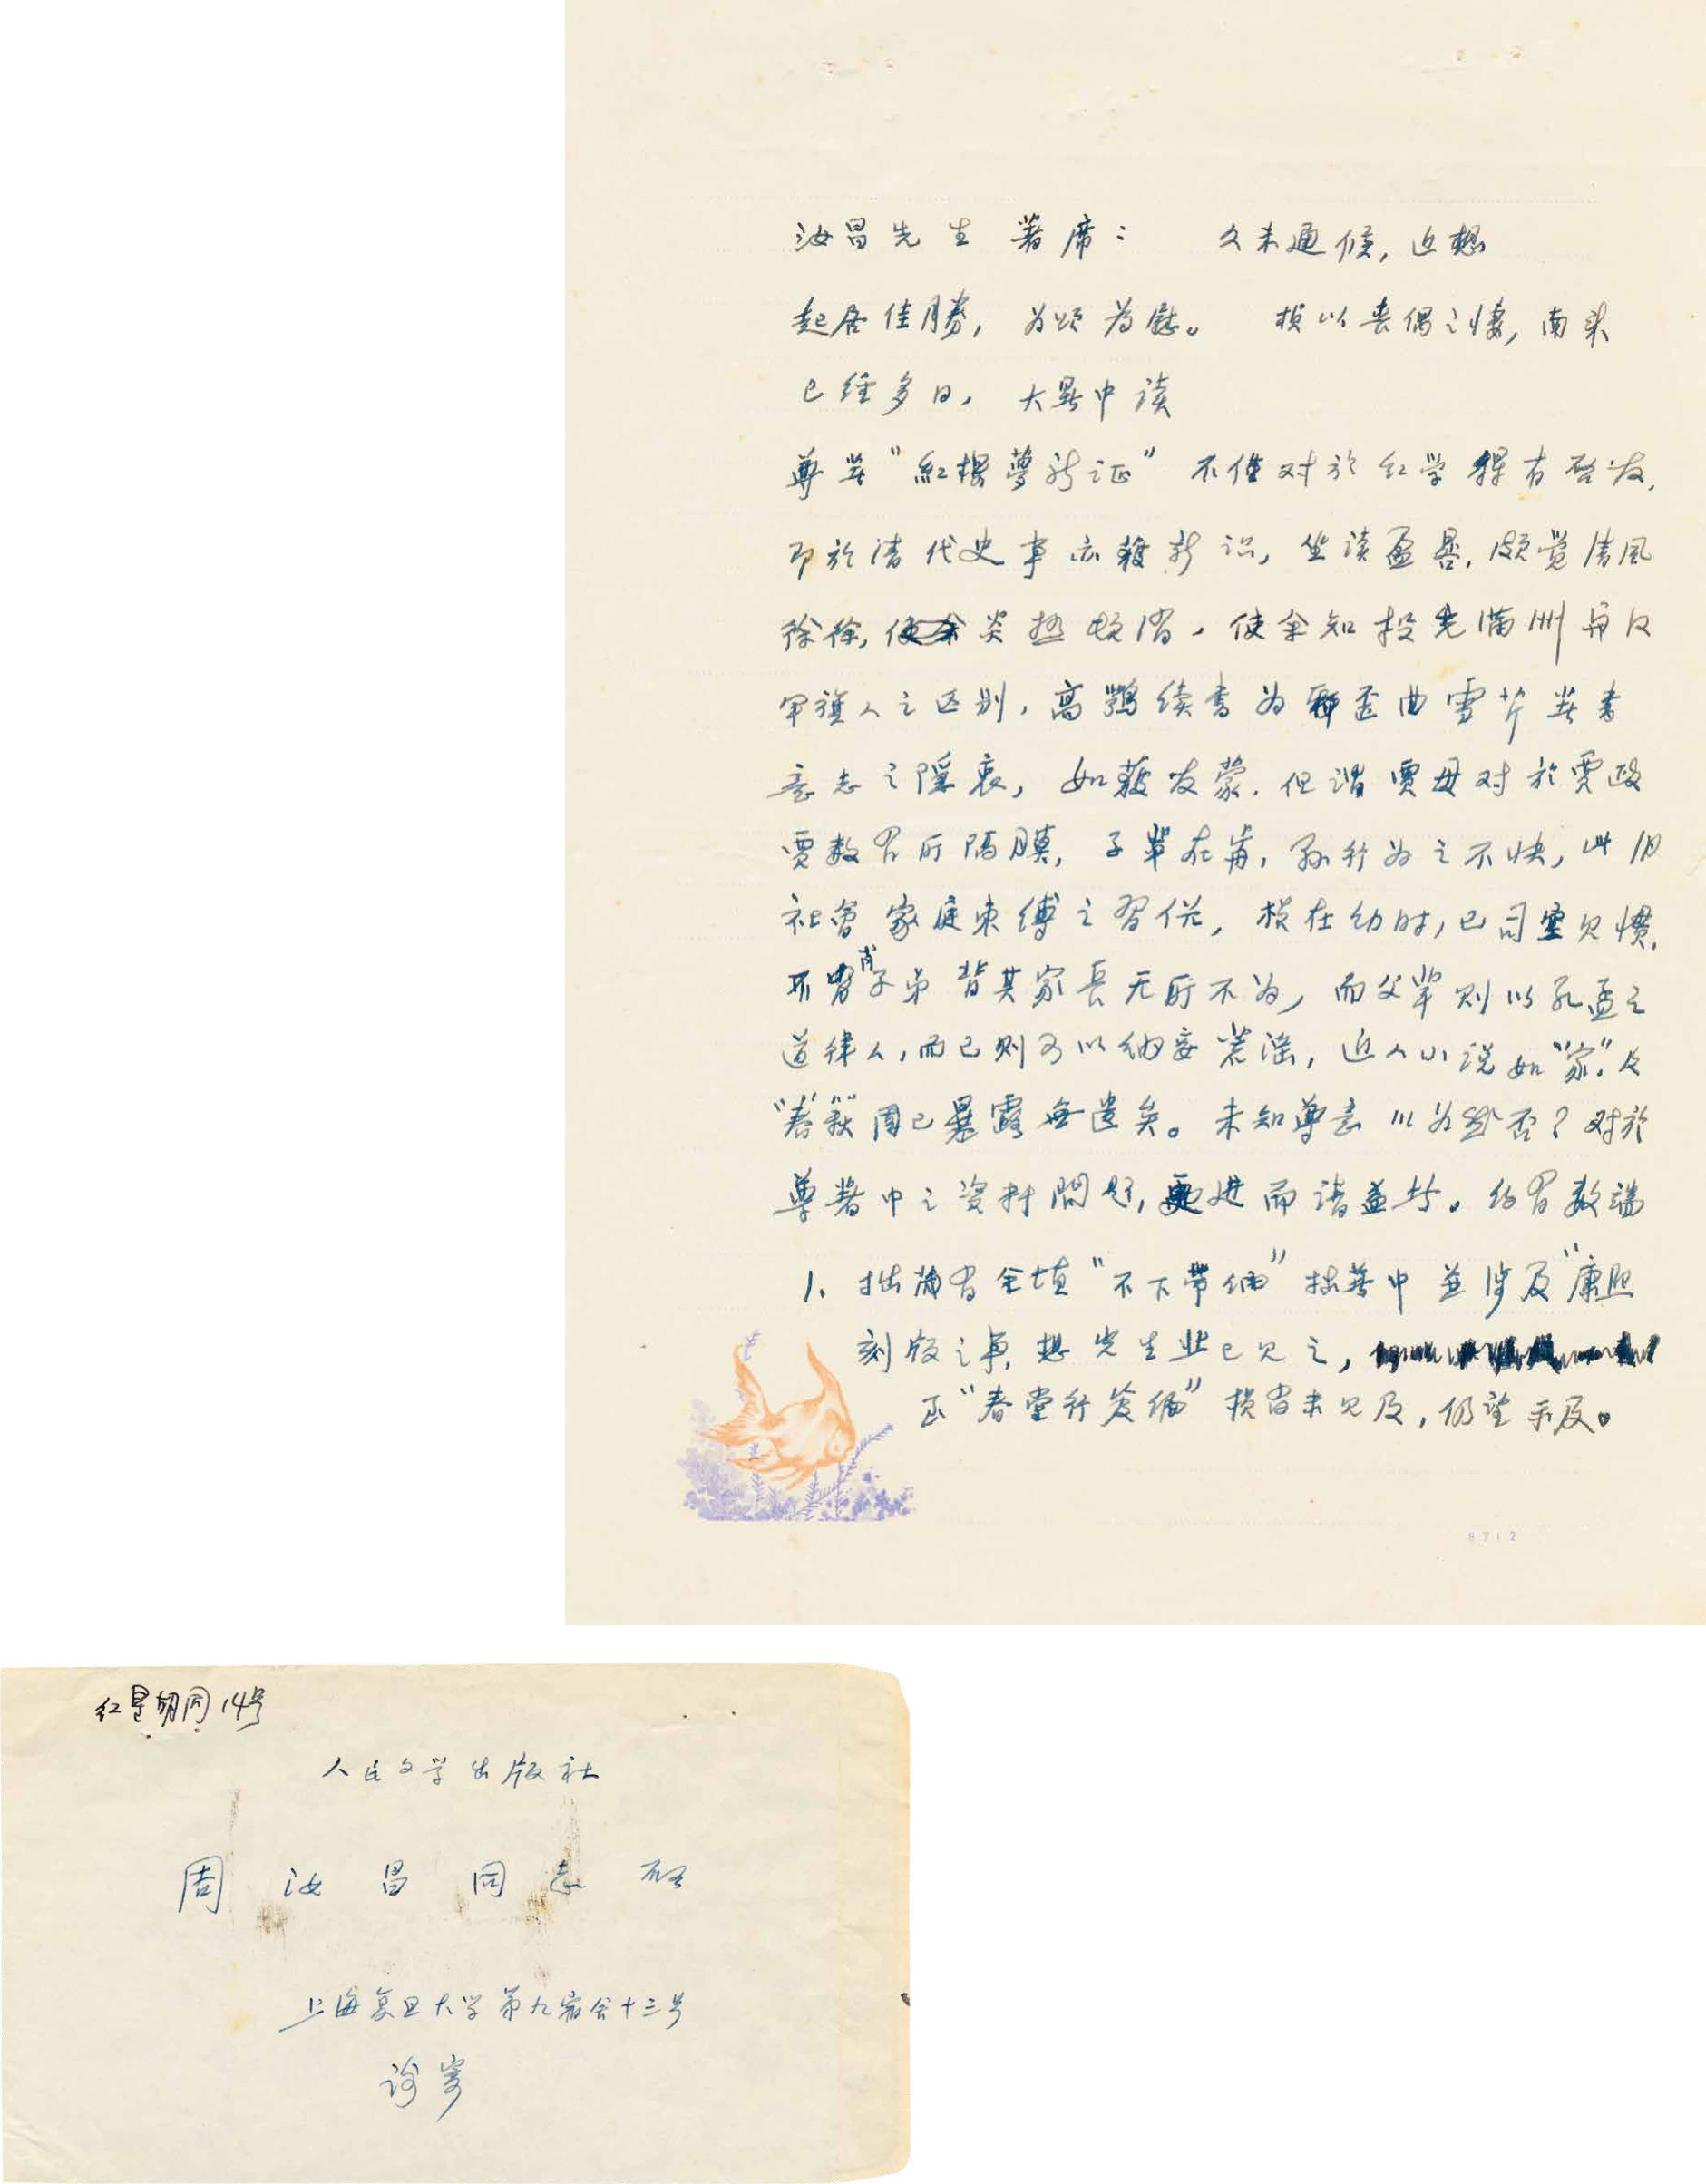 汝昌先生 著席： 久未通候，近想
起居佳勝，为颂为慰。 损以丧偶之悽，南来
已经多日，大暑中读
尊著“紅楼夢新证”不僅对於红学獲有啓发，
即於清代史事亦獲新识，坐读盈晷，頗覺清风
徐徐，炎热頓消，使余知投充满州与汉
军旗人之区别，高鶚续書为歪曲雪芹著書
意志之隱衷，如獲发蒙。但谓贾母对於贾政
贾赦有所隔膜，子輩在旁，孙行为之不快，此旧
社會家庭束缚之習俗，损在幼时，已司空见惯，
不肖子弟背其家長无所不为，而父輩则以孔孟之
道律人，而己则可以纳妾荒淫，近人小说如“家”及
“春”“秋”固已暴露無遗矣。未知尊意以为然否？对於
尊著中之资料問题，更进而请益者。约有数端
1、拙藏有金埴“不下带编”拙著中並涉及“康熙
刻版之事，想先生业已见之，
“春堂行笈编”损尚未见及，仍望示及。
8712
红星胡同14号
人民文学出版社
周汝昌同志啓
上海复旦大学第九宿舍十三号
谢寄